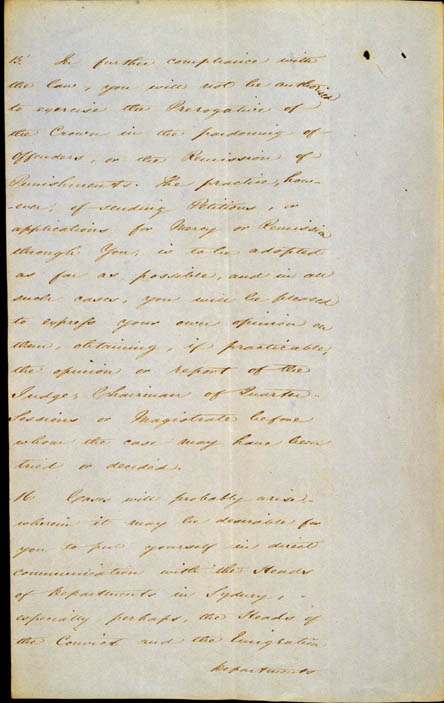 15. In further compliance with
the law, you will not be authorised
to exercise the Prerogative of
the Crown in the pardoning of
Offenders, or the Remission of
Punishments. The practice, how-
-ever, of sending Petitions, or
applications for Mercy or Remission
through You, is to be adopted
as far as possible, and in all
such cases, you will be pleased
to express your own opinion on
them, obtaining, if practicable,
the opinion or report of the
Judge, Chairman of Quarter
Sessions or Magistrate before
whom the case may have been
tried or decided.
16 Cases will probably arise
wherein it may be desirable for
you to put yourself in direct
communication with the Heads
of Departments in Sydney, -
especially perhaps, the Heads of
the Convict and the Emigration
Departments